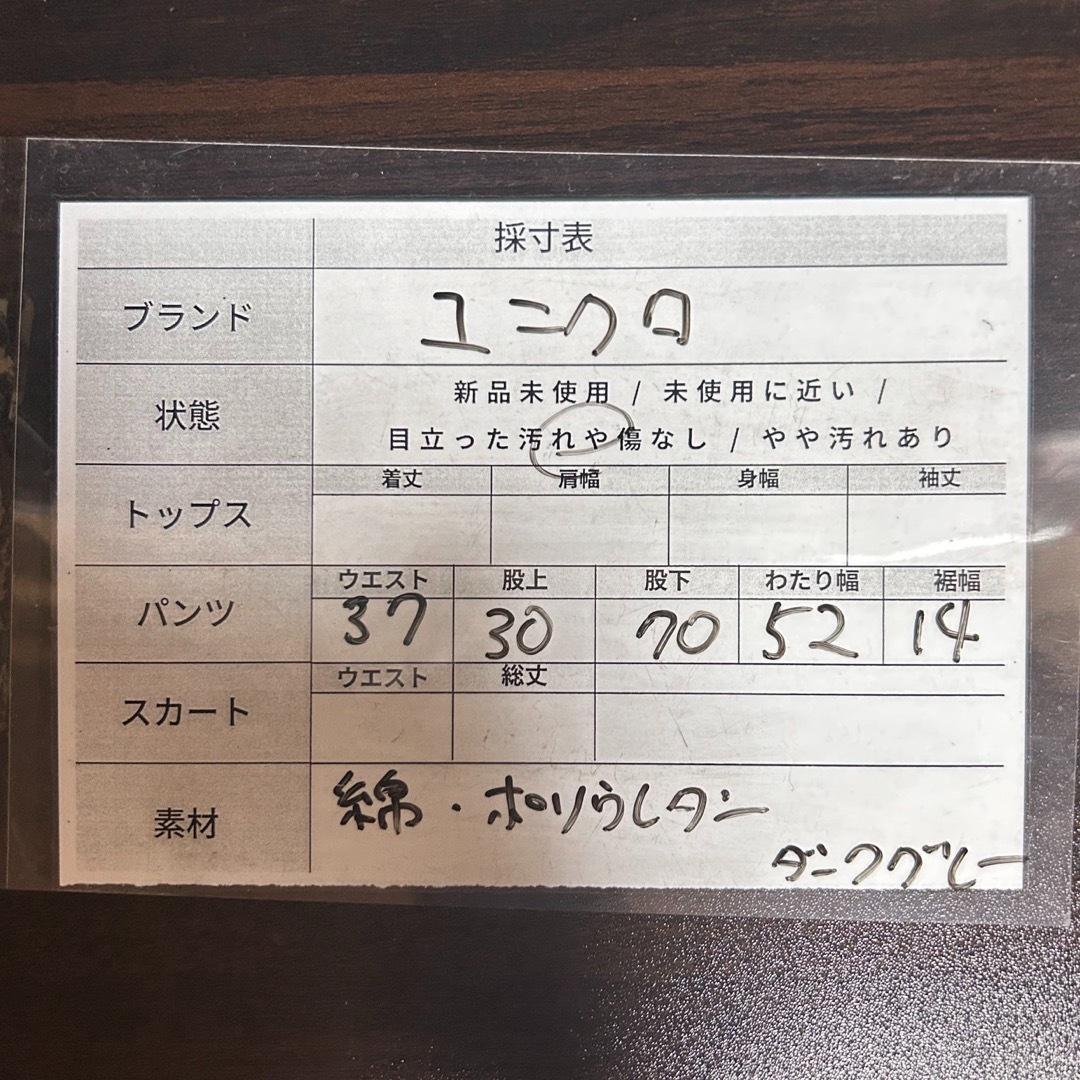 採寸表
ブランド ユニクロ
状態 新品未使用 / 未使用に近い /
目立った汚れや傷なし / やや汚れあり
着丈 肩幅 身幅 袖丈
トップス
ウエスト 股上 股下 わたり幅 裾幅
パンツ 37 30 70 52 14
ウエスト 総丈
スカート
素材 綿・ポリウレタン
ダークグレー